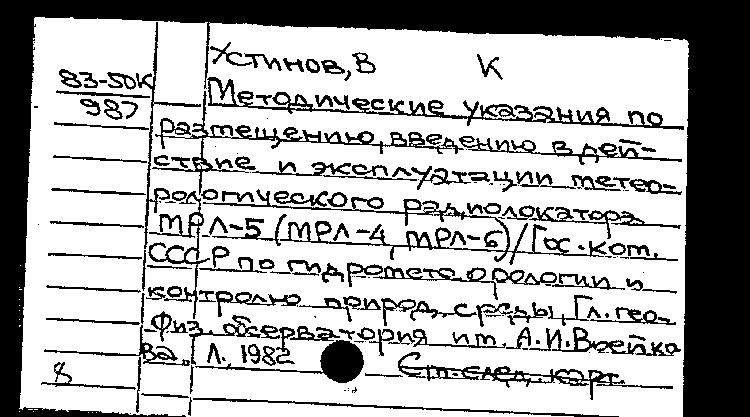 Устинов, В К
83-50К
987
Методические указания по
размещению, введению в дей-
ствие и эксплуатации метео-
рологического радиолокатора
МРЛ-5 (МРЛ-4, МРЛ-6)/Гос. ком.
СССР по гидрометеорологии и
контролю природ. среды, Гл. гео-
физ. обсерватория им. А.И. Воейко
ва. Л., 1982
См. след. карт.
8